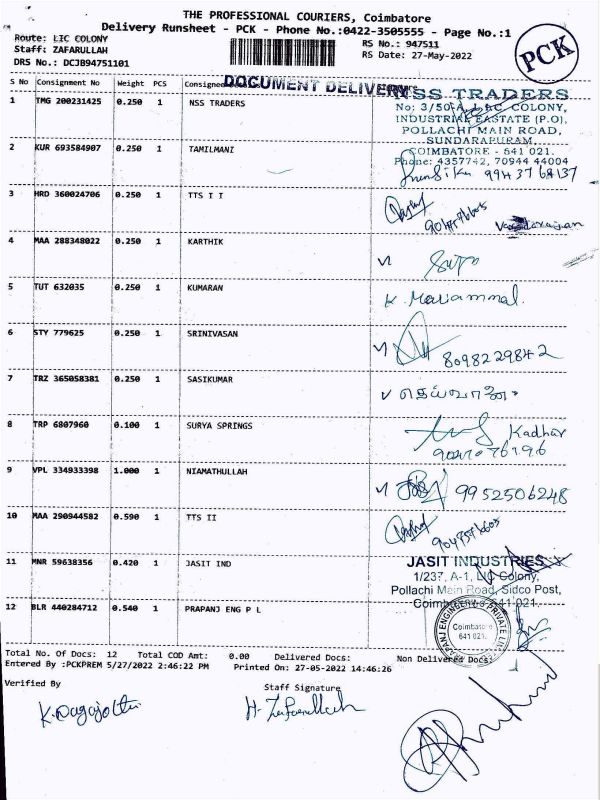 THE PROFESSIONAL COURIERS, Coimbatore
Delivery Runsheet - PCK - Phone No.:0422-3505555 - Page No.:1
Route: LIC COLONY
RS No.: 947511
PCK
Staff: ZAFARULLAH
RS Date: 27-May-2022
DRS No.: DCJB94751101
DOCUMENT DELIVERY
S No Consignment No Weight PCS Consignee
1 TMG 200231425 0.250 1 NSS TRADERS
NSS TRADERS
No: 3/50-A, LIC COLONY,
INDUSTRIAL EASTATE (P.O),
POLLACHI MAIN ROAD,
SUNDARAPURAM,
COIMBATORE - 641 021.
Phone: 4357742, 70944 44004
2 KUR 693584907 0.250 1 TAMILMANI
99437 68137
3 HRD 360024706 0.250 1 TTS I I
4 MAA 288348022 0.250 1 KARTHIK
5 TUT 632035 0.250 1 KUMARAN
K. Mariammal.
6 STY 779625 0.250 1 SRINIVASAN
8098229842
7 TRZ 365058381 0.250 1 SASIKUMAR
8 TRP 6807960 0.100 1 SURYA SPRINGS
Kadhar
9 VPL 334933398 1.000 1 NIAMATHULLAH
9952506248
10 MAA 290944582 0.590 1 TTS II
11 MNR 59638356 0.420 1 JASIT IND
JASIT INDUSTRIES
1/237, A-1, LIC Colony,
Pollachi Main Road, Sidco Post,
Coimbatore-641 021.
12 BLR 440284712 0.540 1 PRAPANJ ENG P L
PRAPANJ ENGINEERING PRIVATE LIMITED
Coimbatore
641 021.
Total No. Of Docs: 12 Total COD Amt: 0.00 Delivered Docs: Non Delivered Docs:
Entered By :PCKPREM 5/27/2022 2:46:22 PM Printed On: 27-05-2022 14:46:26
Verified By
Staff Signature
H. Zafarullah